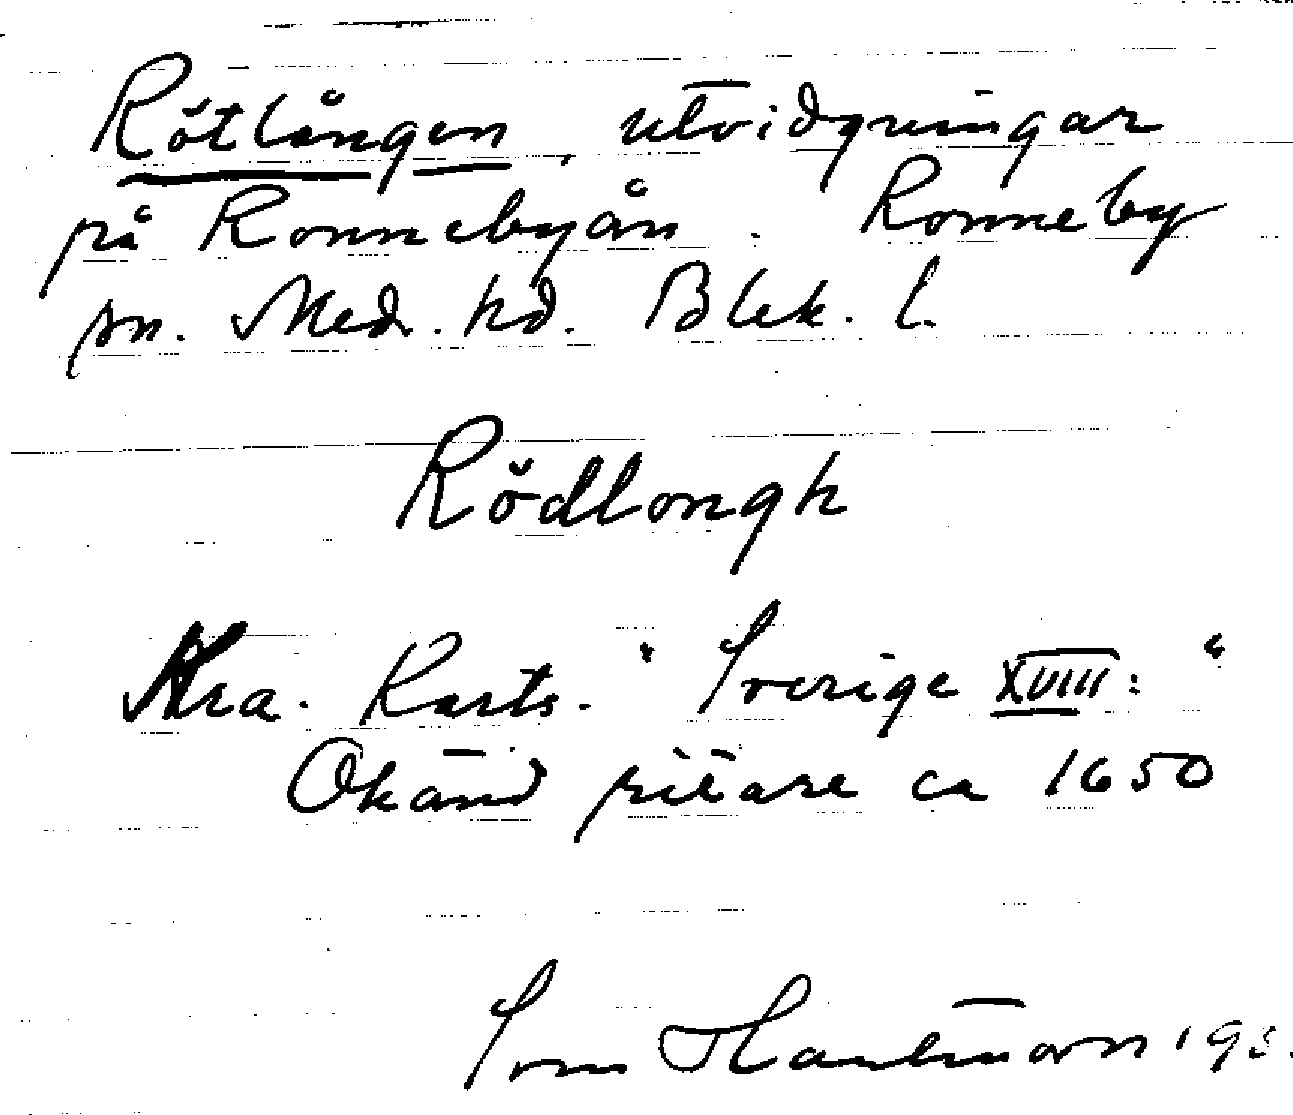 Rötlången, utvidgningar
på Ronnebyån. Ronneby
sn. Med. hd. Blek. l.
Rödlongh
Kra. Karts. "Sverige XVIII:"
Okänd ritare ca 1650
Sven